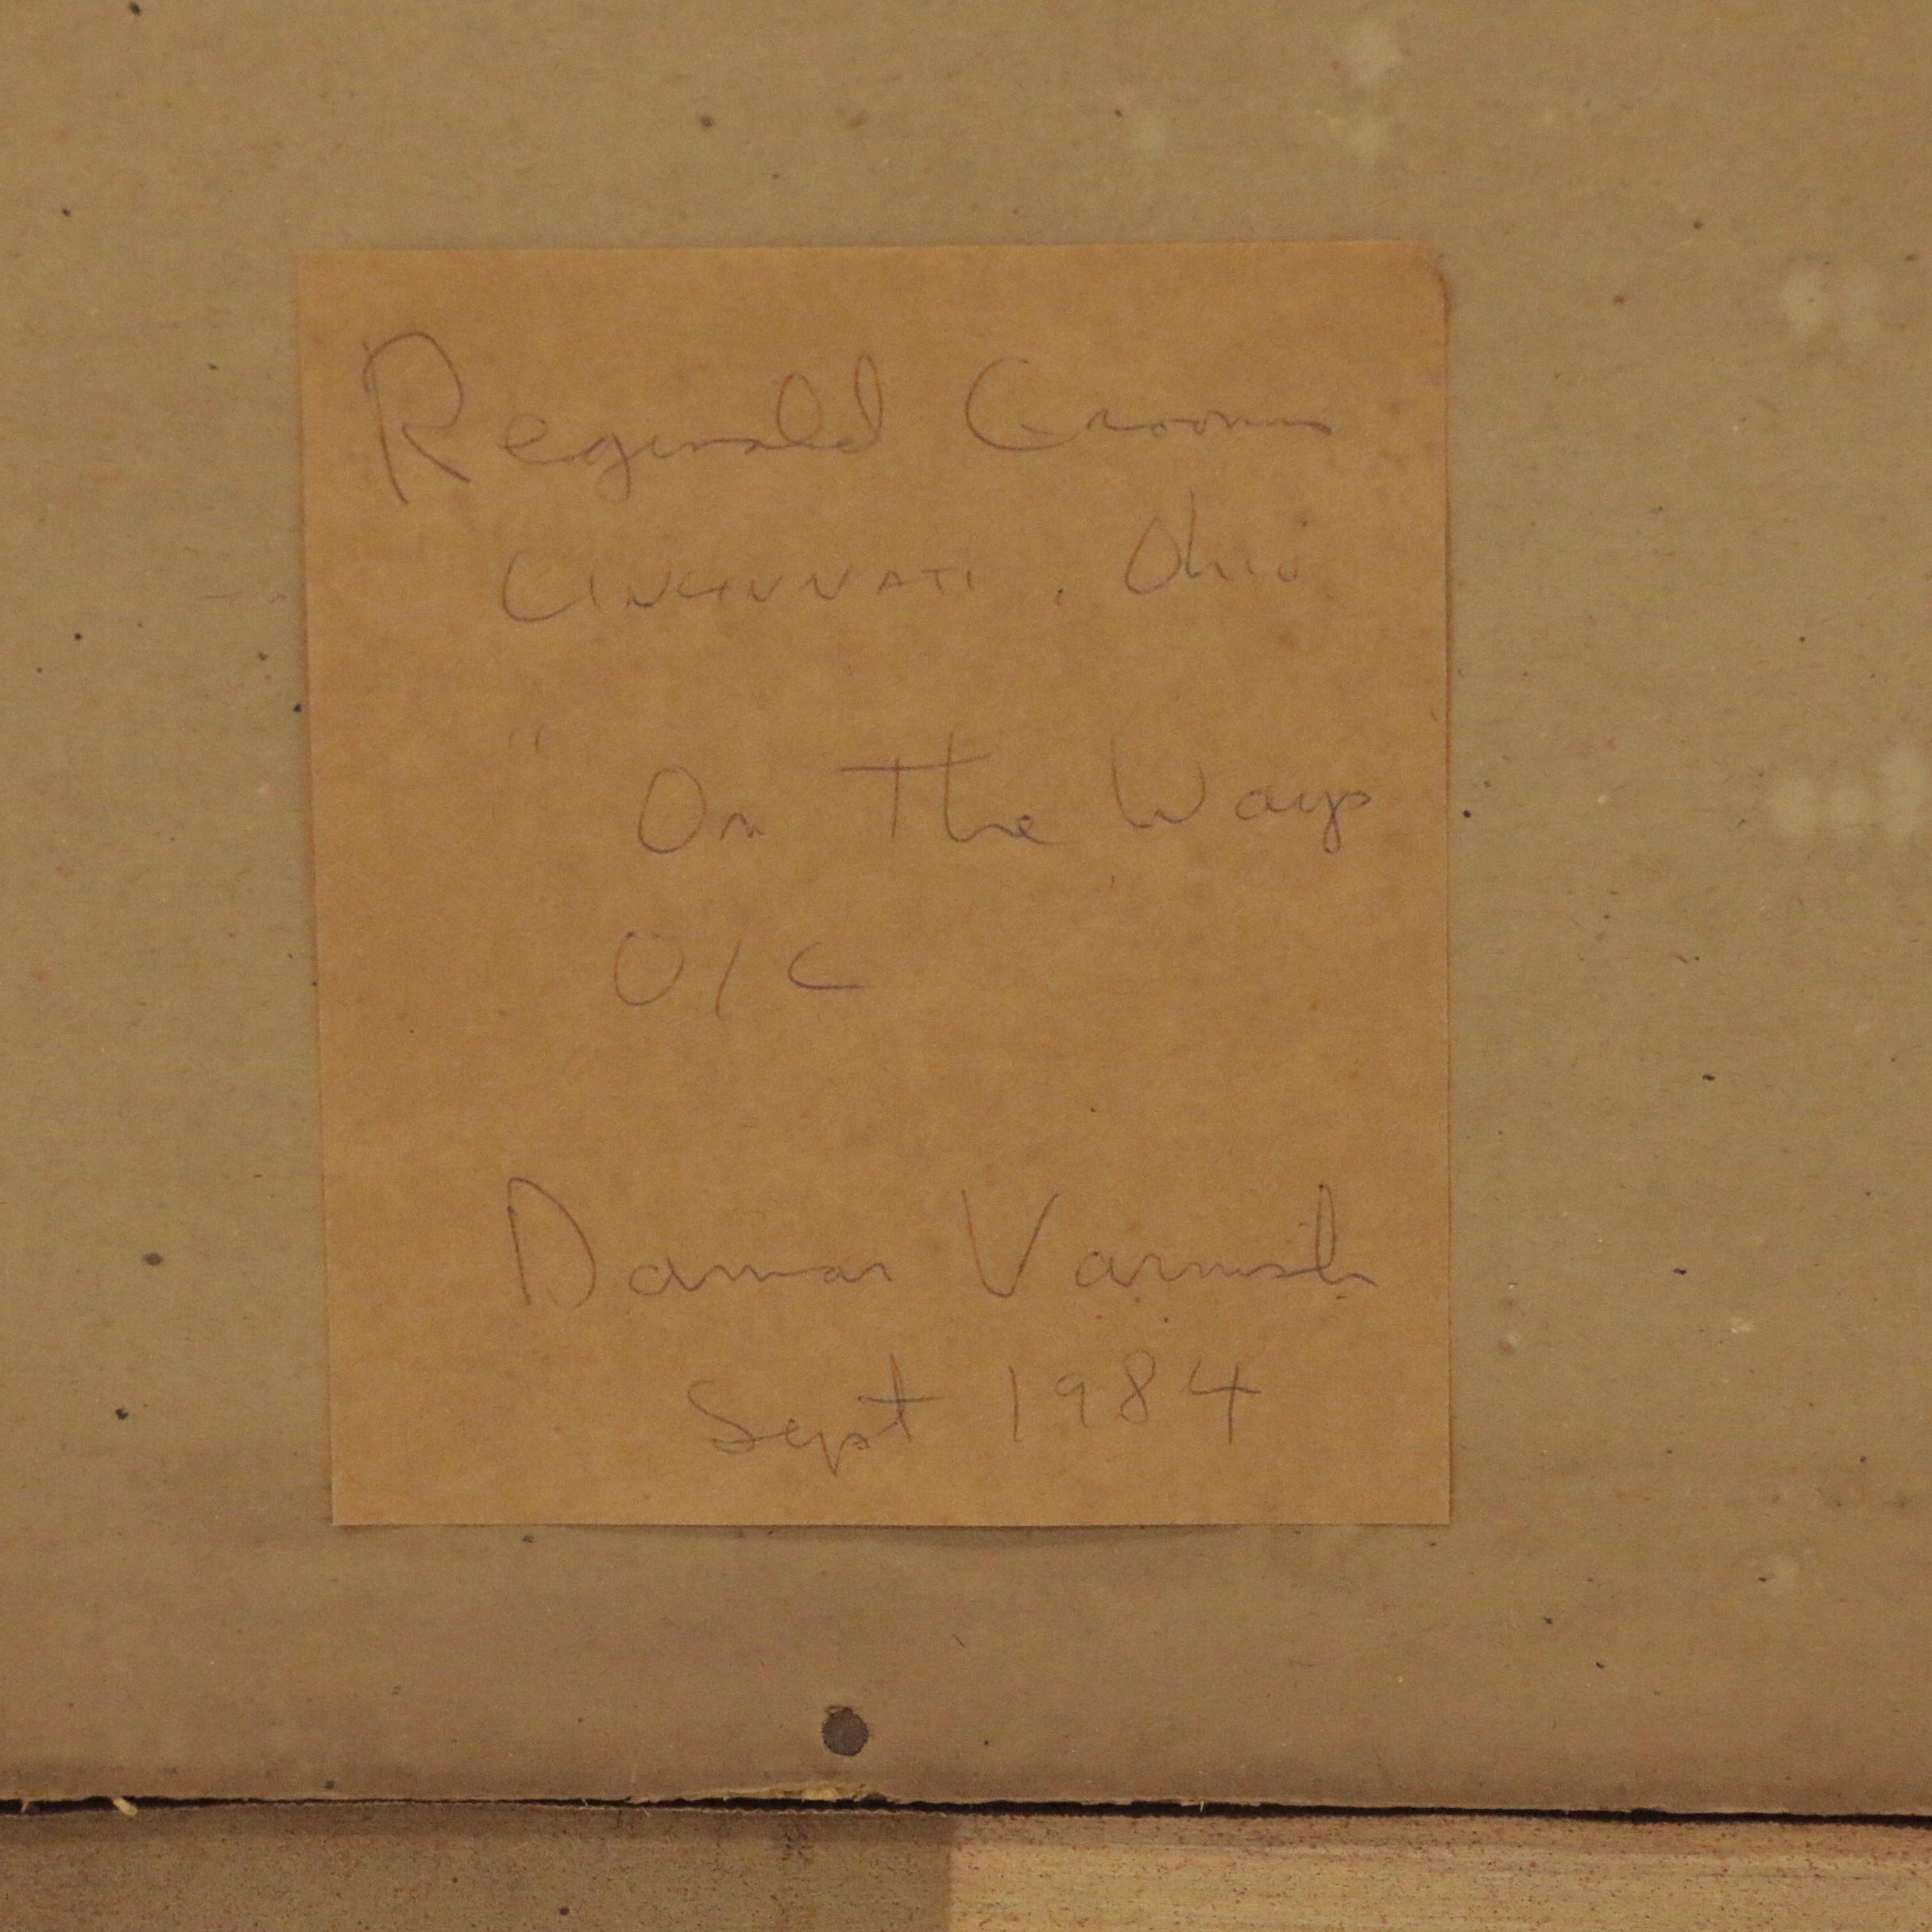 Reginald Grooms
CINCINNATI, Ohio
" On The Ways
O/C
Damar Varnish
Sept 1984